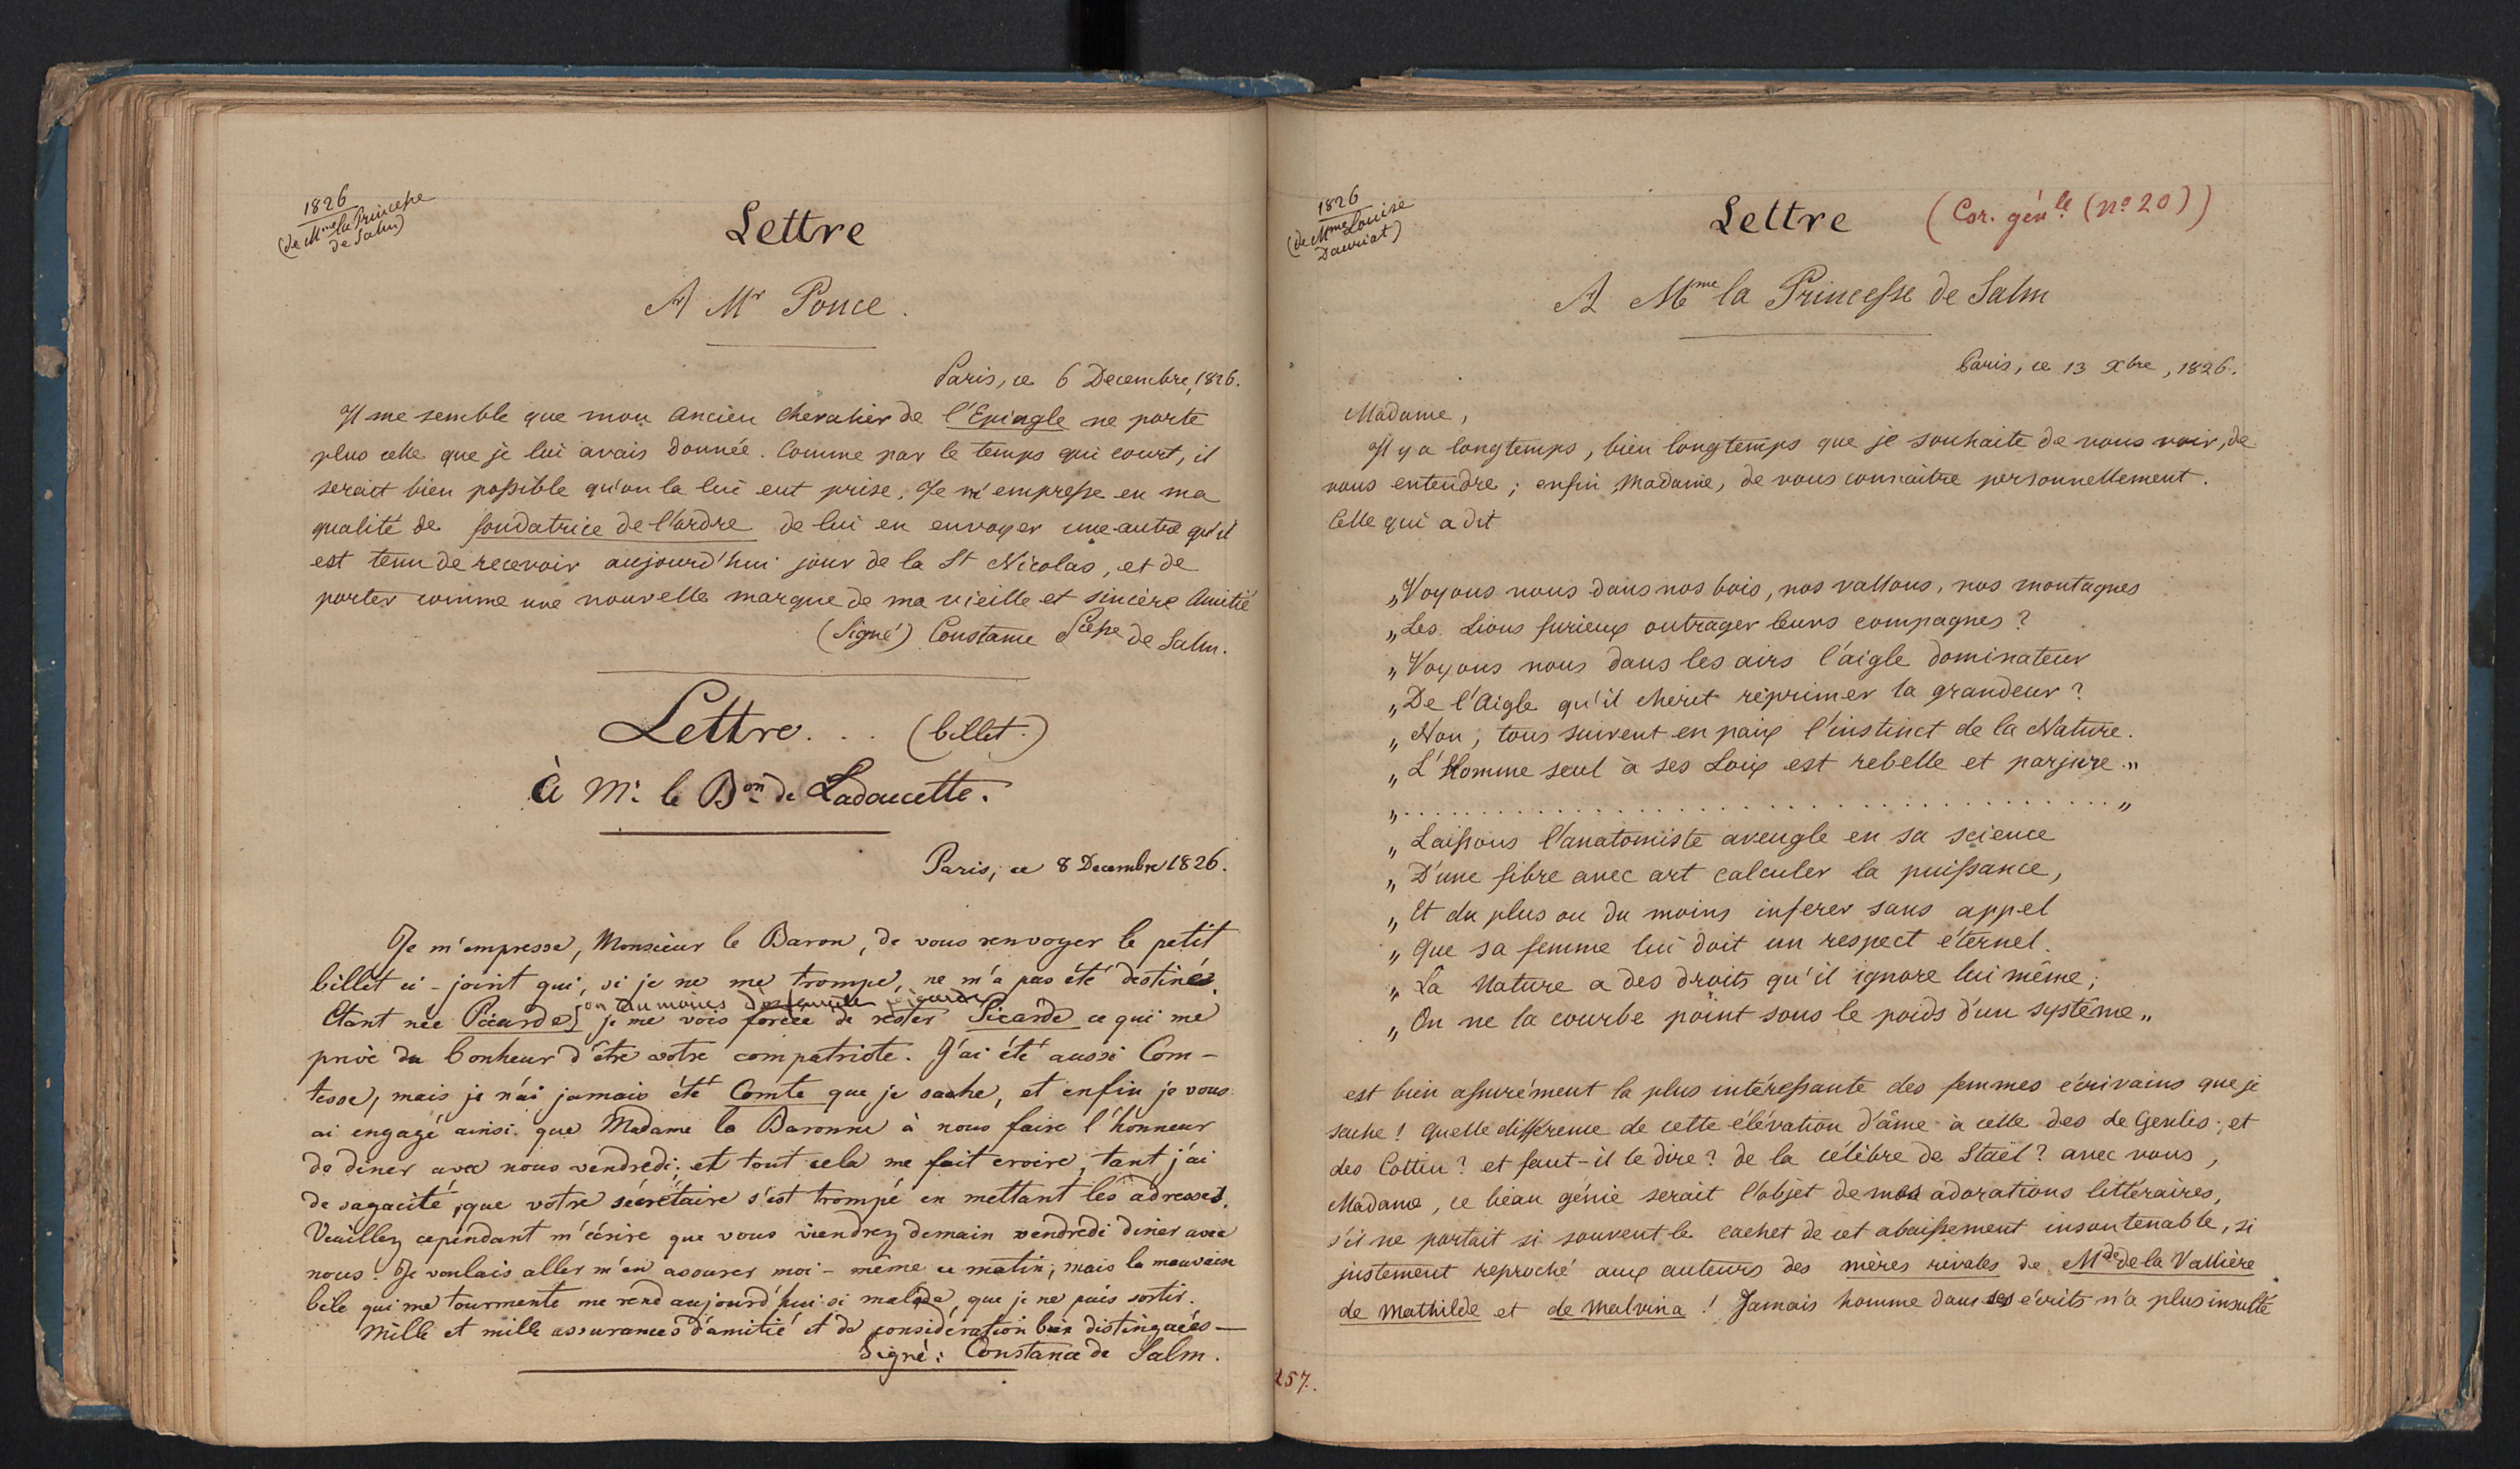 1826
(de Mme la Princesse
de Salm)
Lettre
A Mr Ponce.
Paris, ce 6 Decembre, 1826.
Il me semble que mon ancien chevalier de l'Epingle ne porte
plus celle que je lui avais donnée. Comme par le temps qui court, il
serait bien possible qu'on la lui eut prise, Je m'empresse en ma
qualité de fondatrice de l'ordre de lui en envoyer une autre qu'il
est tenu de recevoir aujourd'hui jour de la St Nicolas, et de
porter comme une nouvelle marque de ma vieille et sincère Amitié
(Signé) Constance Pcesse de Salm.
Lettre. . . (billet.)
à Mr. le Bon. de Ladoucette.
Paris, ce 8 Decembre 1826.
Je m'empresse, Monsieur le Baron, de vous renvoyer le petit
billet ci-joint qui, si je ne me trompe, ne m'a pas été destiné.
ou du moins de famille picarde
Etant née Picarde, je me vois forcée de rester Picarde ce qui me
prive du bonheur d'être votre compatriote. J'ai été aussi Com-
tesse, mais je n'ai jamais été Comte que je sache, et enfin je vous
ai engagé ainsi que Madame la Baronne à nous faire l'honneur
de diner avec nous vendredi; et tout cela me fait croire, tant j'ai
de sagacité, que votre sécrétaire s'est trompé en mettant les adresses.
Veuillez cependant m'écrire que vous viendrez demain vendredi diner avec
nous! Je voulais aller m'en assurer moi-même ce matin; mais la mauvaise
bile qui me tourmente me rend aujourd'hui si malade, que je ne puis sortir.
Mille et mille assurances d'amitié et de considération bien distinguées—
Signé: Constance de Salm.
1826
(de Mme Louise
Dauriat)
Lettre (Cor. génle. (no 20))
A Mme la Princesse de Salm
Paris, ce 13 Xbre, 1826.
Madame,
Il y a longtemps, bien longtemps que je souhaite de vous voir, de
vous entendre; enfin, Madame, de vous connaitre personnellement.
Celle qui a dit
„Voyons nous dans nos bois, nos vallons, nos montagnes
„Les Lions furieux outrager leurs compagnes?
„Voyons nous dans les airs l'aigle dominateur
„De l'Aigle qu'il chérit réprimer la grandeur?
„Non, tous suivent en paix l'instinct de la Nature.
„L'Homme seul à ses Loix est rebelle et parjure.„
„. . . . . . . . . . . . . . . . . . . . . . . . . . . . . . „
„Laissons l'anatomiste aveugle en sa science
„D'une fibre avec art calculer la puissance,
„Et du plus ou du moins inferer sans appel
„Que sa femme lui doit un respect éternel.
„La Nature a des droits qu'il ignore lui même;
„On ne la courbe point sous le poids d'un système„
est bien assurément la plus intéressante des femmes écrivains que je
sache! quelle différence de cette élévation d'âme à celle des de Genlis; et
des Cottin? et faut-il le dire? de la célèbre de Staël? avec vous,
Madame, ce beau génie serait l'objet de mes adorations littéraires,
s'il ne portait si souvent le cachet de cet abaissement insoutenable, si
justement reproché aux auteurs des mères rivales de Mde de la Vallière
de Mathilde et de Malvina! Jamais homme dans ses écrits n'a plus insulté
257.